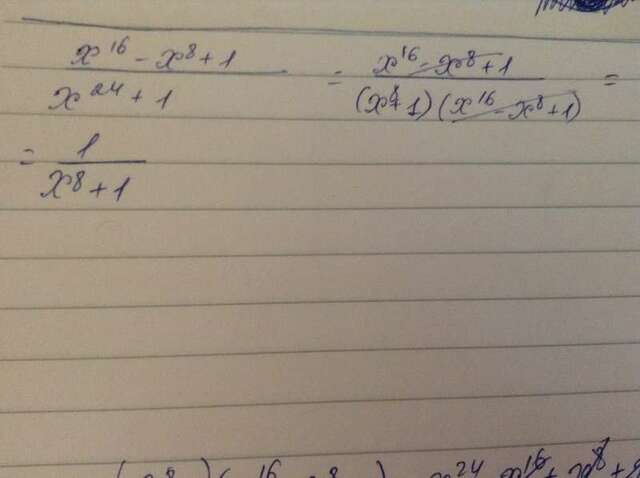 x^16 - x^8 + 1 / x^24 + 1 = x^16 - x^8 + 1 / (x^8 + 1)(x^16 - x^8 + 1) =
= 1 / x^8 + 1
x^24 x^16 + x^8 +